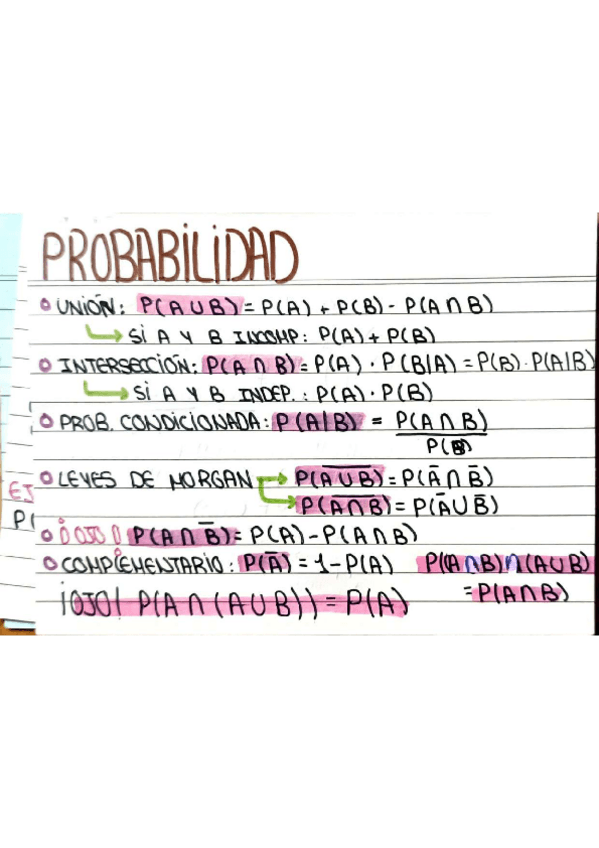 PROBABILIDAD
UNIÓN: P(A ∪ B) = P(A) + P(B) - P(A ∩ B)
SI A Y B INCOMP: P(A) + P(B)
INTERSECCIÓN: P(A ∩ B) = P(A) · P(B/A) = P(B) · P(A/B)
SI A Y B INDEP.: P(A) · P(B)
PROB. CONDICIONADA: P(A/B) = P(A ∩ B)
P(B)
LEYES DE MORGAN P(A̅ ̅∪̅ ̅B̅) = P(A̅ ∩ B̅)
EJ
P(A̅ ̅∩̅ ̅B̅) = P(A̅ ∪ B̅)
P(
¡OJO! P(A ∩ B̅) = P(A) - P(A ∩ B)
COMPLEMENTARIO: P(A̅) = 1 - P(A) P((A ∩ B) ∩ (A ∪ B)
= P(A ∩ B)
¡OJO! P(A ∩ (A ∪ B)) = P(A)